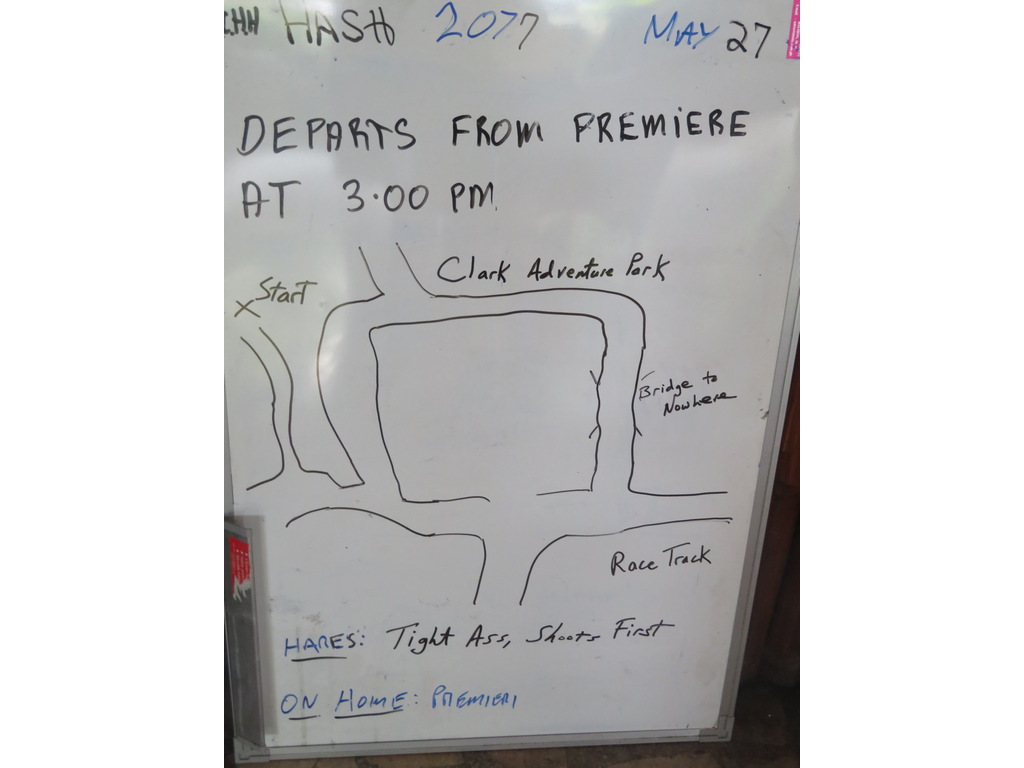 HHH HASH 2077 MAY 27
DEPARTS FROM PREMIERE
AT 3.00 PM
Clark Adventure Park
X Start
Bridge to
Nowhere
Race Track
HARES: Tight Ass, Shoots First
ON HOME: PREMIERI